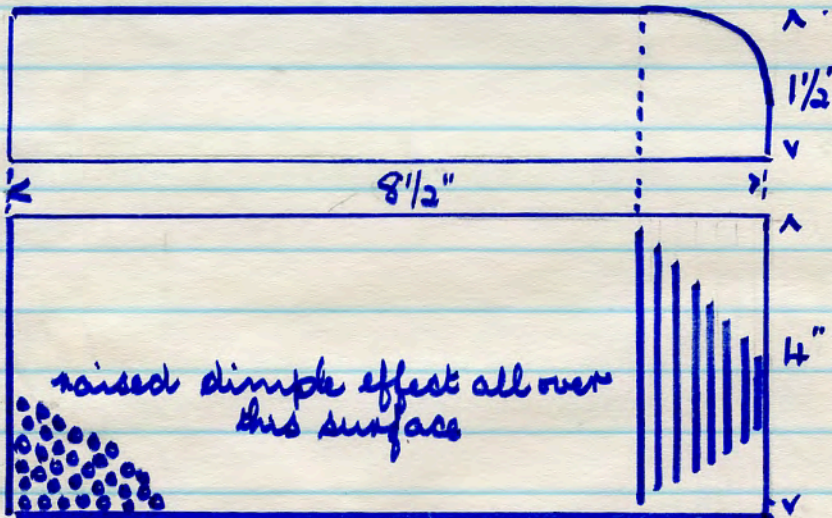 1½"
8½"
4"
raised dimple effect all over
this surface